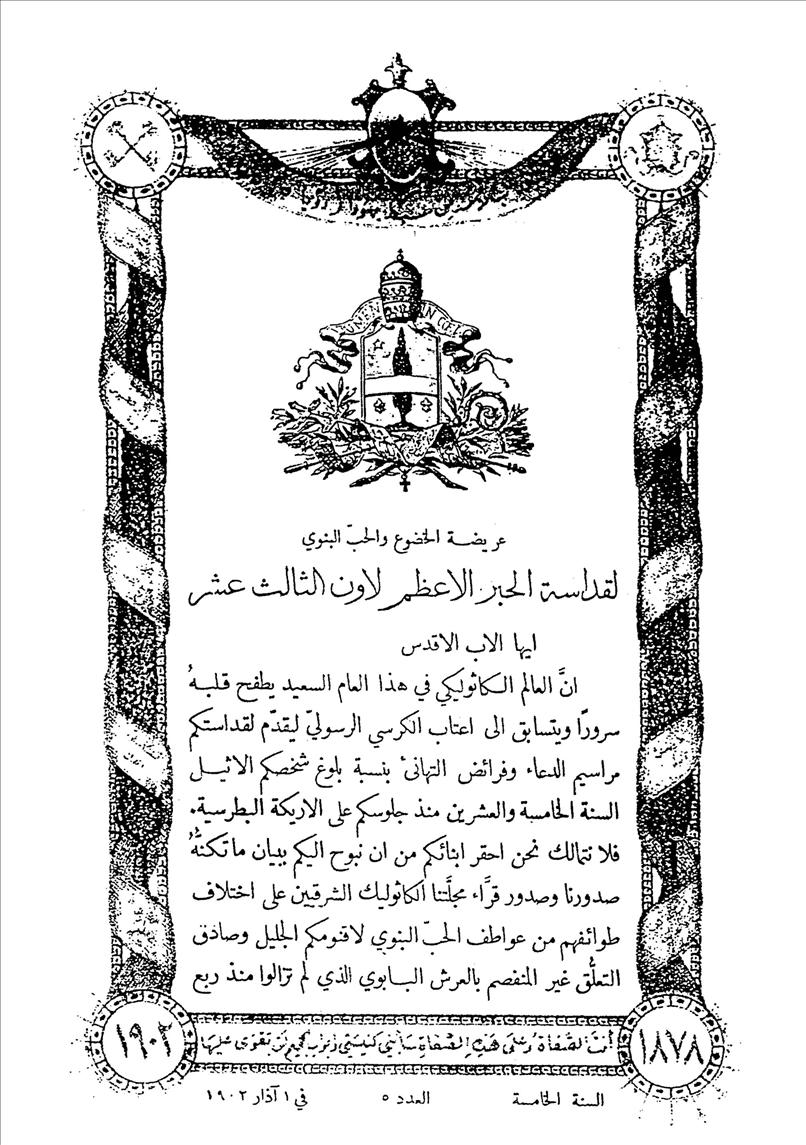 LUMEN IN CŒLO
عريضة الخضوع والحبّ البنوي
لقداسة الحبر الاعظم لاون الثالث عشر
ايها الاب الاقدس
انَّ العالم الكاثوليكي في هذا العام السعيد يطفح قلبهُ
سرورًا ويتسابق الى اعتاب الكرسي الرسوليّ ليقدّم لقداستكم
مراسيم الدعاء وفرائض التهانئ بنسبة بلوغ شخصكم الاثيل
السنة الخامسة والعشرين منذ جلوسكم على الاريكة البطرسية.
فلا نتمالك نحن احقر ابنائكم من ان نبوح اليكم ببيان ما تكنّهُ
صدورنا وصدور قرَّاء مجلَّتنا الكاثوليك الشرقيين على اختلاف
طوائفهم من عواطف الحبّ البنوي لاقنومكم الجليل وصادق
التعلُّق غير المنفصم بالعرش البابوي الذي لم تزالوا منذ ربع
١٨٧٨
انت الصفاة وعلى هذه الصفاة سابني كنيستي وابواب الجحيم لن تقوى عليها
١٩٠٢
السنة الخامسة العدد ٥ في ١ آذار ١٩٠٢